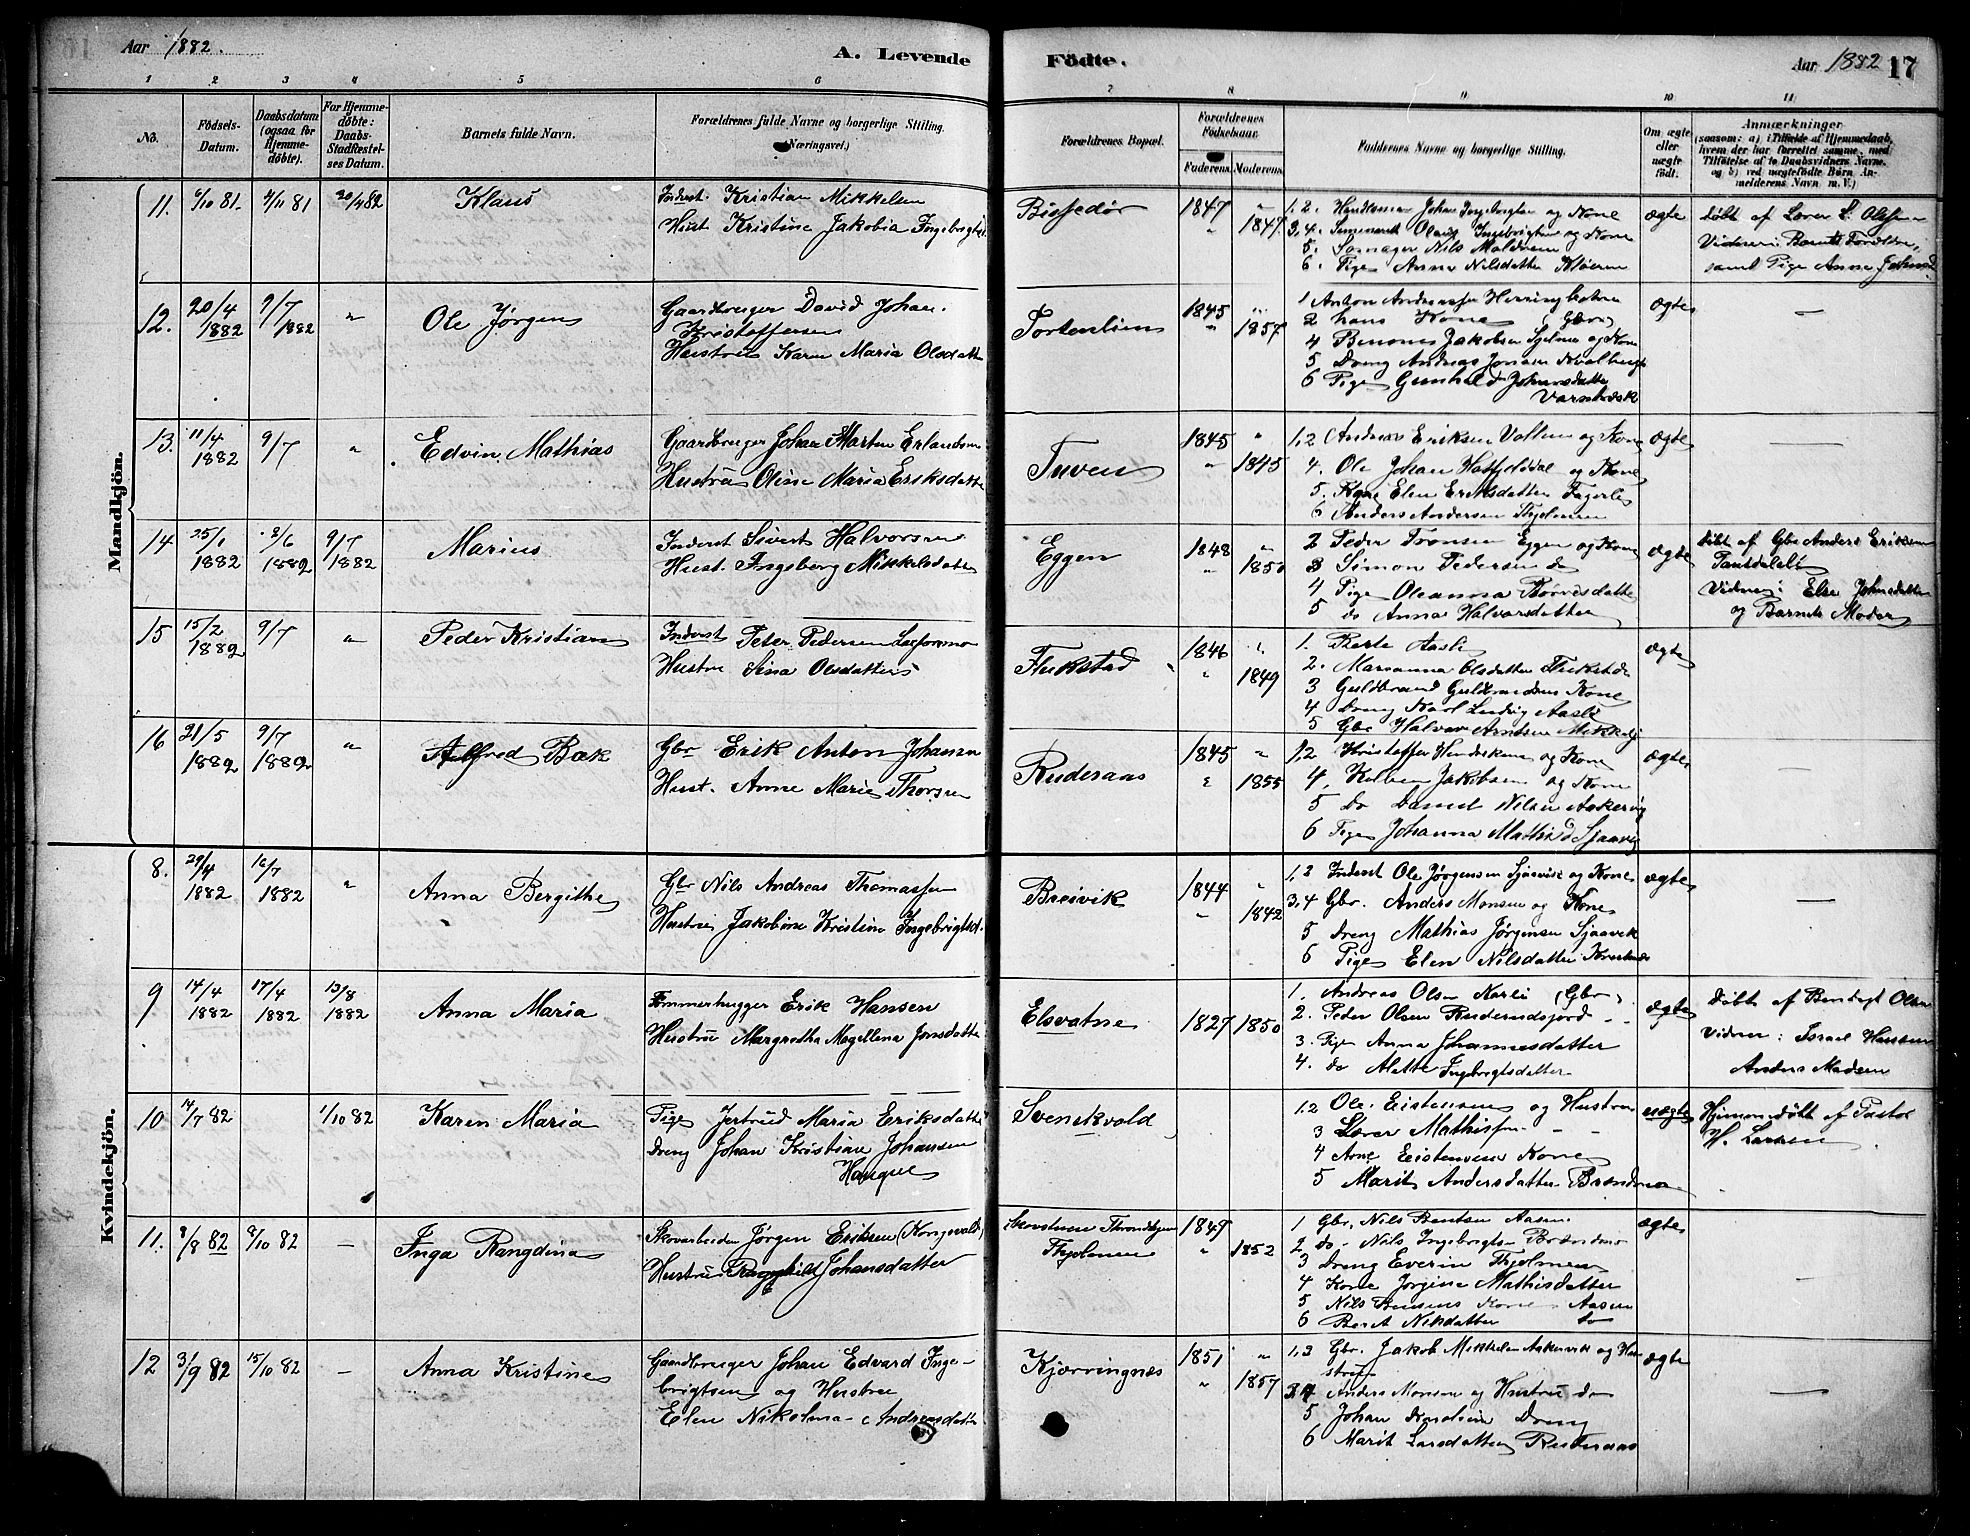 Aar 1882.
A. Levende
Födte.
Aar 1882 17
1 2 3 4 5 6 7 8 9 10 11
No.
Födsels-Datum.
Daabsdatum (ogsaa for Hjemmedöbte).
For Hjemmedöbte: Daabs-Stadfæstelses Datum.
Barnets fulde Navn.
Forældrenes fulde Navne og borgerlige Stilling. (Næringsvei.)
Forældrenes Bopæl.
Forældrenes Födselsaar.
Faderens. Moderens.
Faddernes Navne og borgerlige Stilling.
Om ægte eller uægte födt.
Anmærkninger
(saasom: a) i Tilfælde af Hjemmedaab, hvem der har forrettet samme, med Tilföielse af to Daabsvidners Navne, og b) ved uægtefödte Börn Anmelderens Navn m. V.)
Mandkjön.
11. 6/10 81. 7/11 81 20/4 82 Klaus
Inderst. Kristian Mikkelsen
Hust Kristine Jakobia Ingebrigtsd.
Bissedør 1847 " " 1847.
1, 2. Johan Ingebrigtsen og Kone
3, 4. Olaus Ingebrigtsen og Kone
5. Nils
6. Pige Anna Nilsdatter
ægte
døbt af Lærer L. Olsen
Vidner: Barnets Forældre,
samt Pige Anne
12. 20/4 1882 9/7 1882 " Ole Jørgen
Gaardbruger David Johan
Kristoffersen
Hustru Karen Maria Olsdatter
Tortenlien 1845 " " 1857
1 Anton Andreassen
2 hans Kone
4 Benones Jakobsen og Kone
5 Dreng Andreas Jonsen
6 Pige Gunhild Johansdatter
ægte —
13. 11/4 1882 9/7 " Edvin Mathias
Gaardbruger Johan Marten Erlandsen
Hustru Oline Maria Eriksdatter
Tuven 1845 " " 1845
1,2 Andreas Eriksen Vollen og Kone
4. Ole Johan Hatfjelddal og Kone
5. Kone Elen Eriksdatter Fagerli
6 Anders Andersen
ægte —
14 25/1 1882 2/6 1882 9/7 1882 Marius
Inderst Sivert Halvorsen
Hust. Ingeborg Mikkelsdatter
Eggen 1848 " " 1850
2 Peder Tronsen Eggen og Kone
3 Simon Pedersen do
4 Pige Oleanna
5 do Anna Halvorsdatter
ægte
døbt af Gbr Anders Eriksen
Vidner: Else Johnsdatter
og Barnets Moder
15 15/2 1882 9/7 " Peder Kristian
Inderst Peter Pedersen Laxformo
Hustru Sina Olsdatter
Flukstad 1846 " " 1849
1. Aasli
2. Marianna Olsdatter Flukstad
3 Guldbrand Guldbrandsens Kone
4 Dreng Karl Ludvig Aasli
5 Gbr Halvor Arntsen
ægte
16 21/5 1882 9/7 1882 " Alfred Bæk
Gbr Erik Anton Johansen
Hust. Anne Marie Thorsen
Ruderaas 1845 " " 1855
1,2 Kristoffer Hendriksen og Kone
4, Jakobsen og Kone
5 Do Daniel Nilsen Askervig
6 Pige Johanna
ægte —
Kvindekjön.
8. 29/4 1882 16/7 1882 " Anna Bergithe
Gbr Nils Andreas Thomassen
Hustru Jakobine Kristine Ingebrigtsd.
Breivik 1844 " " 1842
1,2 Inderst Ole Jørgensen Sjaavik og Kone
3,4 Gbr. Anders Monsen og Kone
5 Dreng Mathias Jørgensen Sjaavik
6 Pige Elen Nilsdatter
ægte —
9 14/4 1882 17/4 1882 13/8 1882 Anna Maria
Tømmerhugger Erik Hansen
Hustru Margretha Magellena Jonsdatter
Elsvatne 1827 1850
1. Andreas Olsen (Gbr)
2. Peder Olsen
3. Pige Anna Johannesdatter
4. do Alette Ingebrigtsdatter
ægte
døbt af Bendigt Olsen
Vidner: Israel Hansen
Anders Madsen
10 14/7 82 1/10 82 Karen Maria
Pige Jertrud Maria Eriksdatter
Dreng Johan Kristian Johansen
Haugen
Svenskvold
1.2 Ole Eistensen og Hustru
3 Lærer Mathissen
4 Arne Eistensens Kone
5 Marit Andersdatter Brændmo
uægte
Hjemmedøbt af Pastor
H. Larsen
11. 9/8 82 8/10 82 — Inga Rangdina
Skovarbeider Jørgen Eriksen (Kongsvold)
Hustru Ragnhild Johansdatter
Skovstuen Throndhjem
Fjelmoen 1849 " " 1852
1 Gbr. Nils Bentsen Aasen
2 do Nils Ingebrigts Brændmo
3 Dreng Everin
4 Kone Jorgine Mathisdatter
5 Nils Bensens Kone Aasen
6 Beret Nilsdatter do
ægte —
12 3/9 82 15/10 82 — Anna Kristine
Gaardbruger Johan Edvard Ingebrigtsen og Hustru
Elen Nikolina Andreasdatter
Kjærringnæs 1851 " " 1857
1,2 Gbr. Jakob Mikkelsen Askervik og Hustru
3,4 Anders Monsen og Hustru do
5 Johan Dreng
6 Marit Larsdatter Ruderaas
ægte —